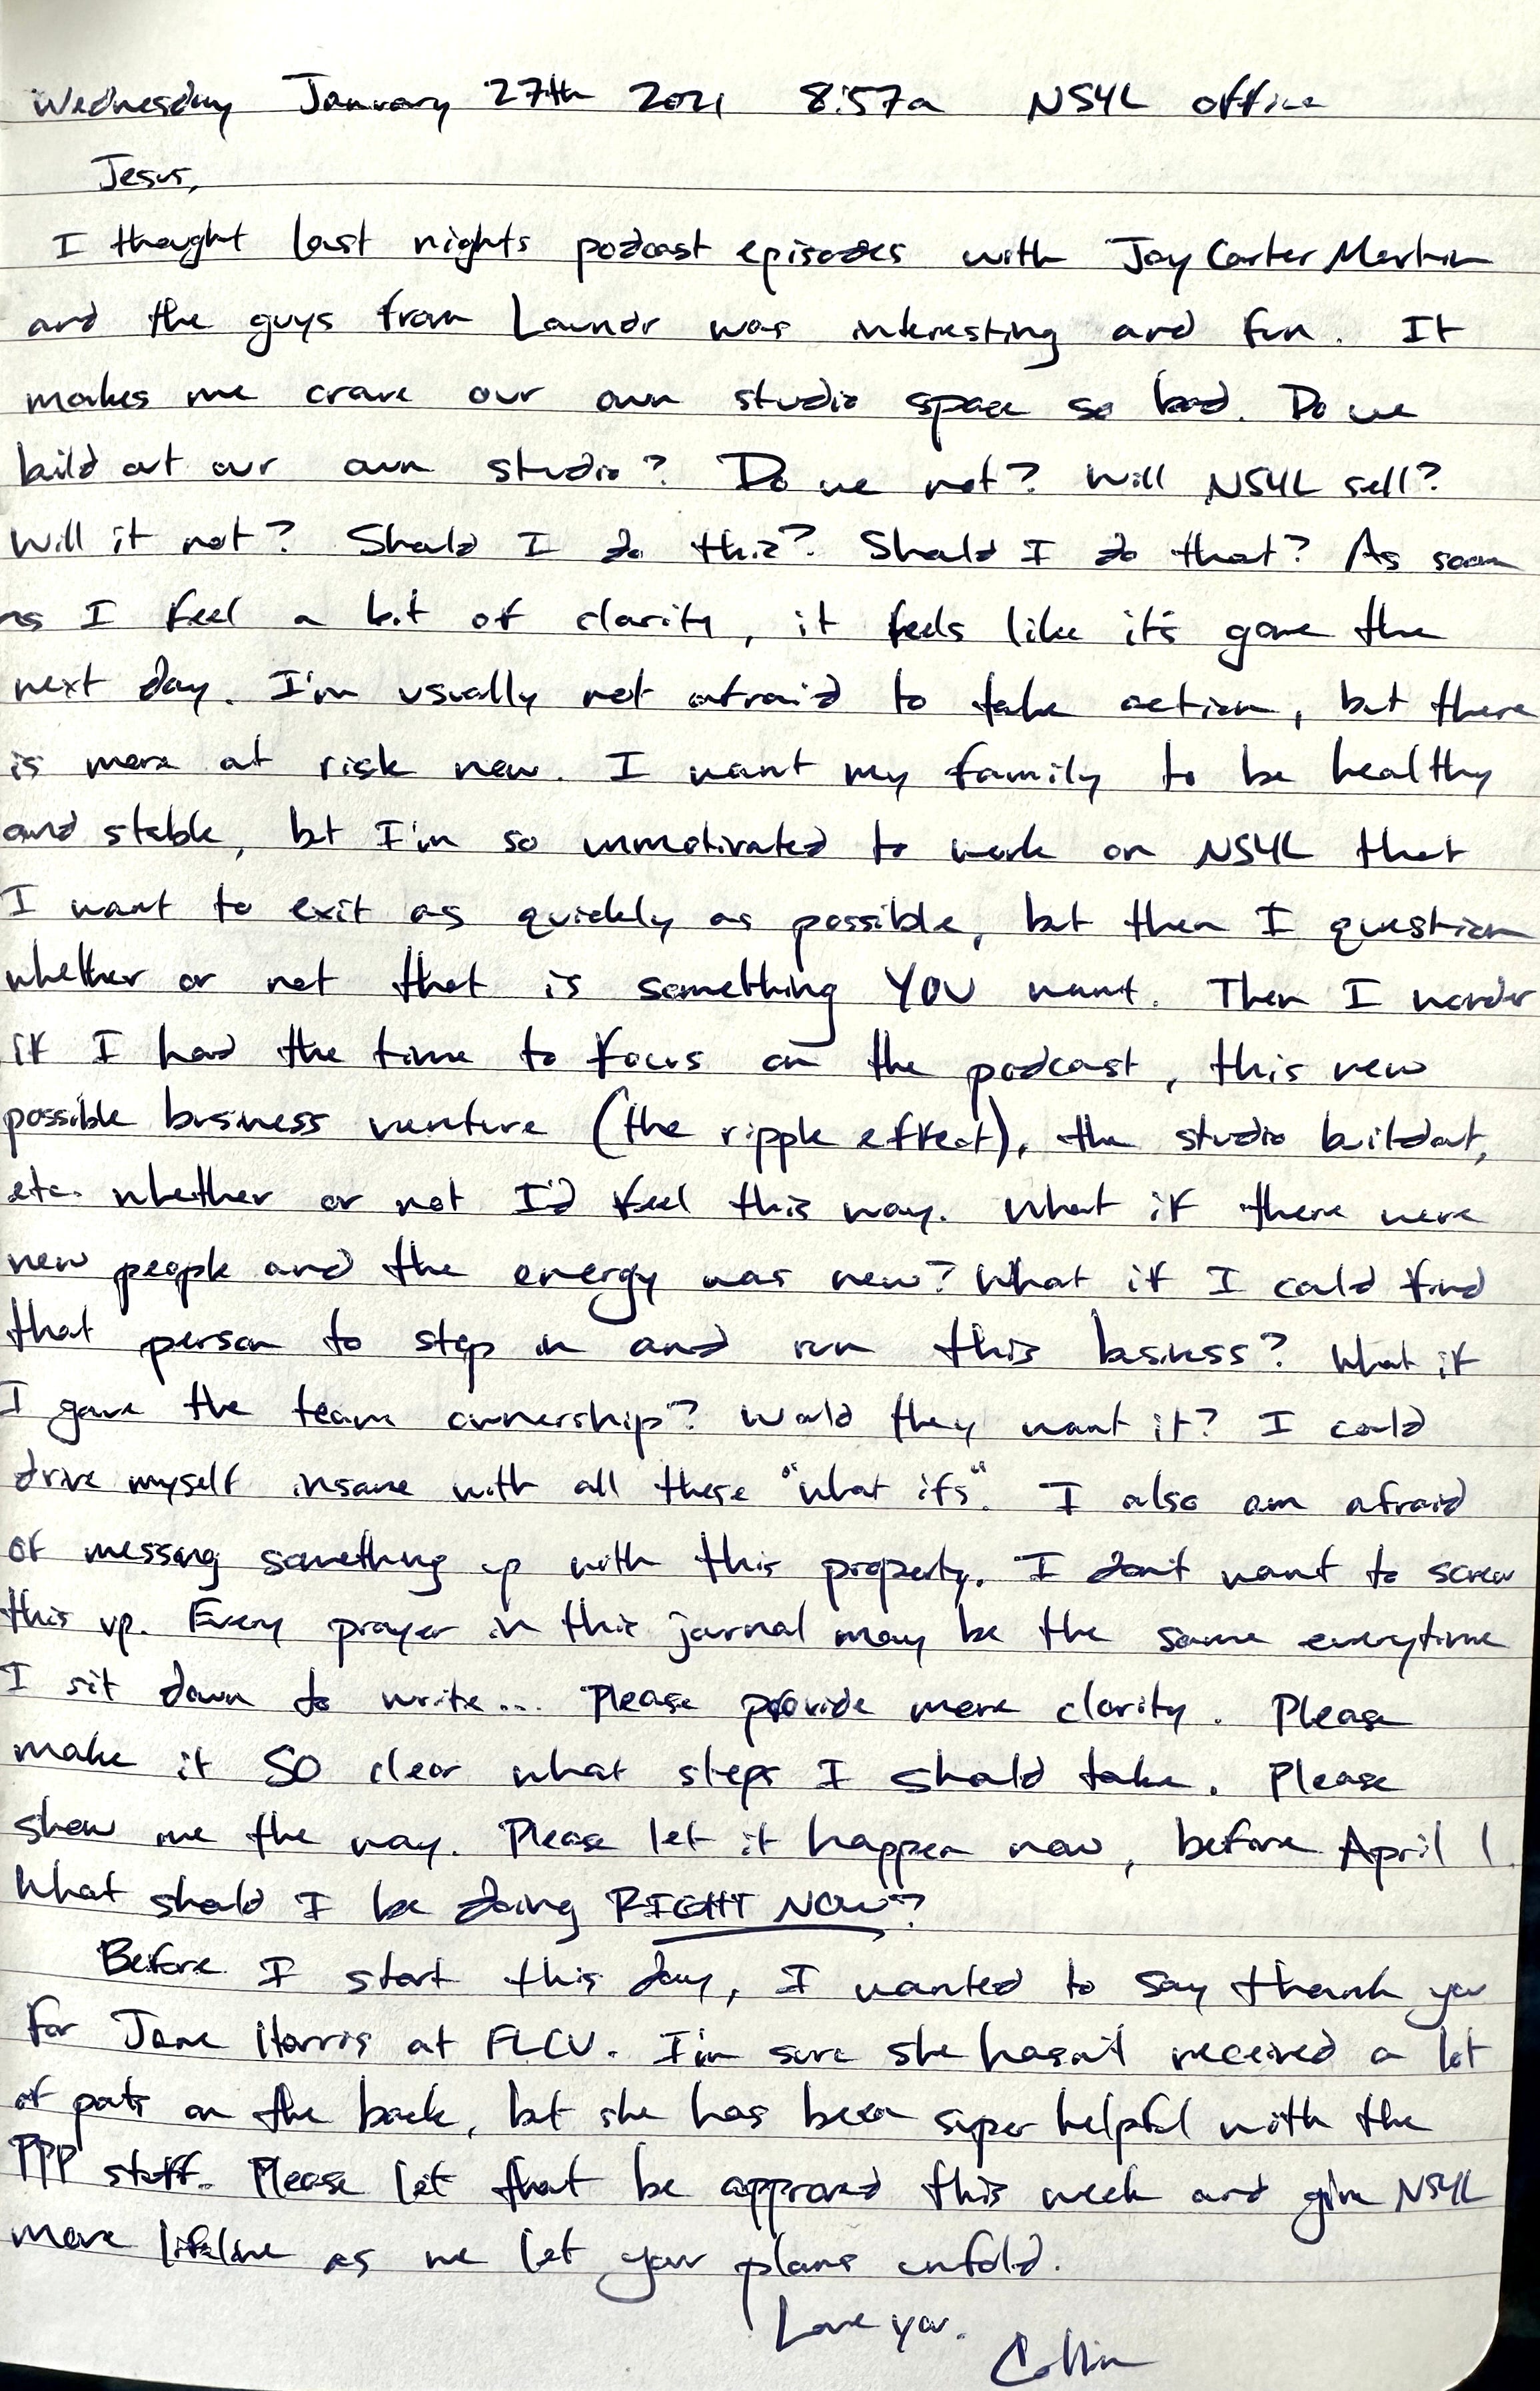 Wednesday January 27th 2021 8:57a NS4L office
Jesus,
I thought last nights podcast episodes with Jay Carter
and the guys from Laundr was interesting and fun. It
makes me crave our own studio space so bad. Do we
build out our own studio? Do we not? Will NS4L sell?
Will it not? Should I do this? Should I do that? As soon
as I feel a bit of clarity, it feels like it's gone the
next day. I'm usually not afraid to take action, but there
is more at risk now. I want my family to be healthy
and stable, but I'm so unmotivated to work on NS4L that
I want to exit as quickly as possible, but then I question
whether or not that is something YOU want. Then I wonder
if I had the time to focus on the podcast, this new
possible business venture (the ripple effect), the studio buildout,
etc. whether or not I'd feel this way. What if there were
new people and the energy was new? What if I could find
that person to step in and run this business? What if
I gave the team ownership? Would they want it? I could
drive myself insane with all these "what ifs". I also am afraid
of messing something up with this property. I don't want to screw
this up. Every prayer in this journal may be the same everytime
I sit down to write... Please provide more clarity. Please
make it SO clear what steps I should take. Please
show me the way. Please let it happen now, before April 1.
What should I be doing RIGHT NOW?
Before I start this day, I wanted to say thank you
for Jane Harris at FLCU. I'm sure she hasn't received a lot
of pats on the back, but she has been super helpful with the
PPP stuff. Please let that be approved this week and give NS4L
more lifeline as we let your plans unfold.
Love you.
Collin